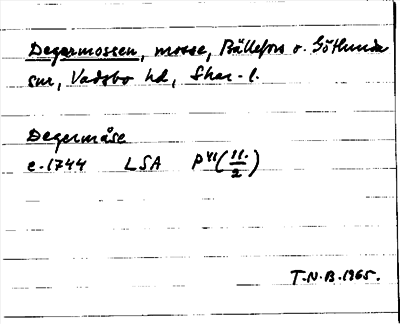 Degermossen, mosse, Bällefors o. Götlunda
snr, Vadsbo hd, Skar. l.
Degermåse
e. 1744 LSA P VI (11./2)
T.N.B. 1965.